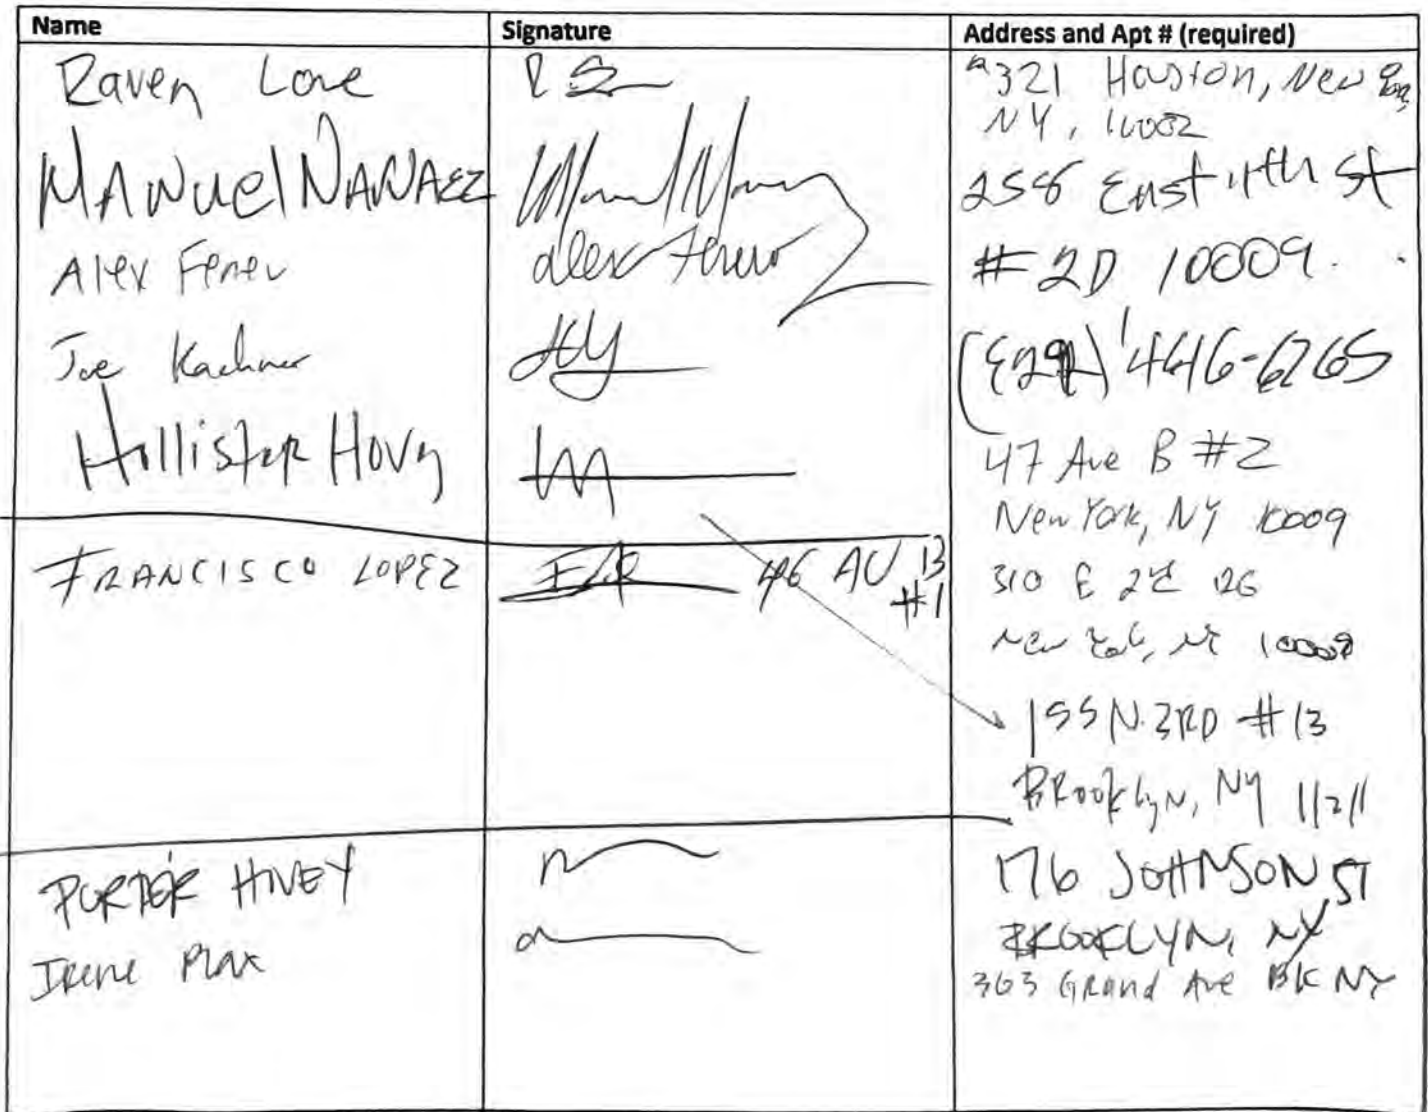 Name Signature Address and Apt # (required)
Raven Love 321 Houston, New York,
NY, 10002
Manuel 258 East 4th St
# 2D 10009.
Alex Alex
Joe 446-6265
Hollister Hovey 47 Ave B #2
New York, NY 10009
FRANCISCO LOPEZ 46 AV B
#1
310 E 2
New York, NY 10009
155 N. 3RD #13
Brooklyn, NY 11211
PORTER HOVEY 176 JOHNSON ST
BROOKLYN, NY
Irene 363 Grand Ave BK NY